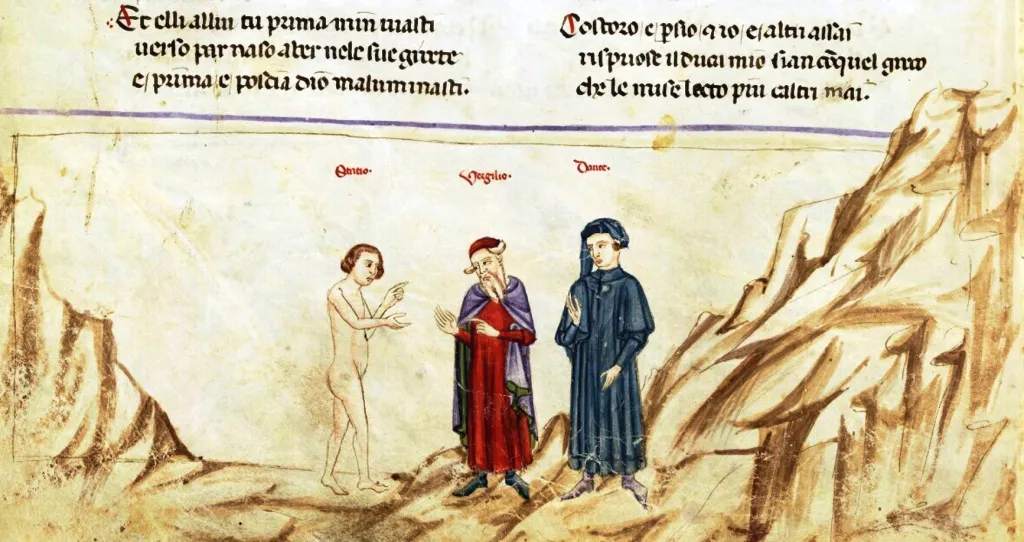 Et elli allui tu prima min uiasti
uerso par naso aber nele sue grocte
e prima e poscia dio maluminasti.
Costoro e psio e io e altri assai
rispuose il duci mio sian con quel greco
che le muse lacto piu caltri mai.
Statio.
Vergilio.
Dante.